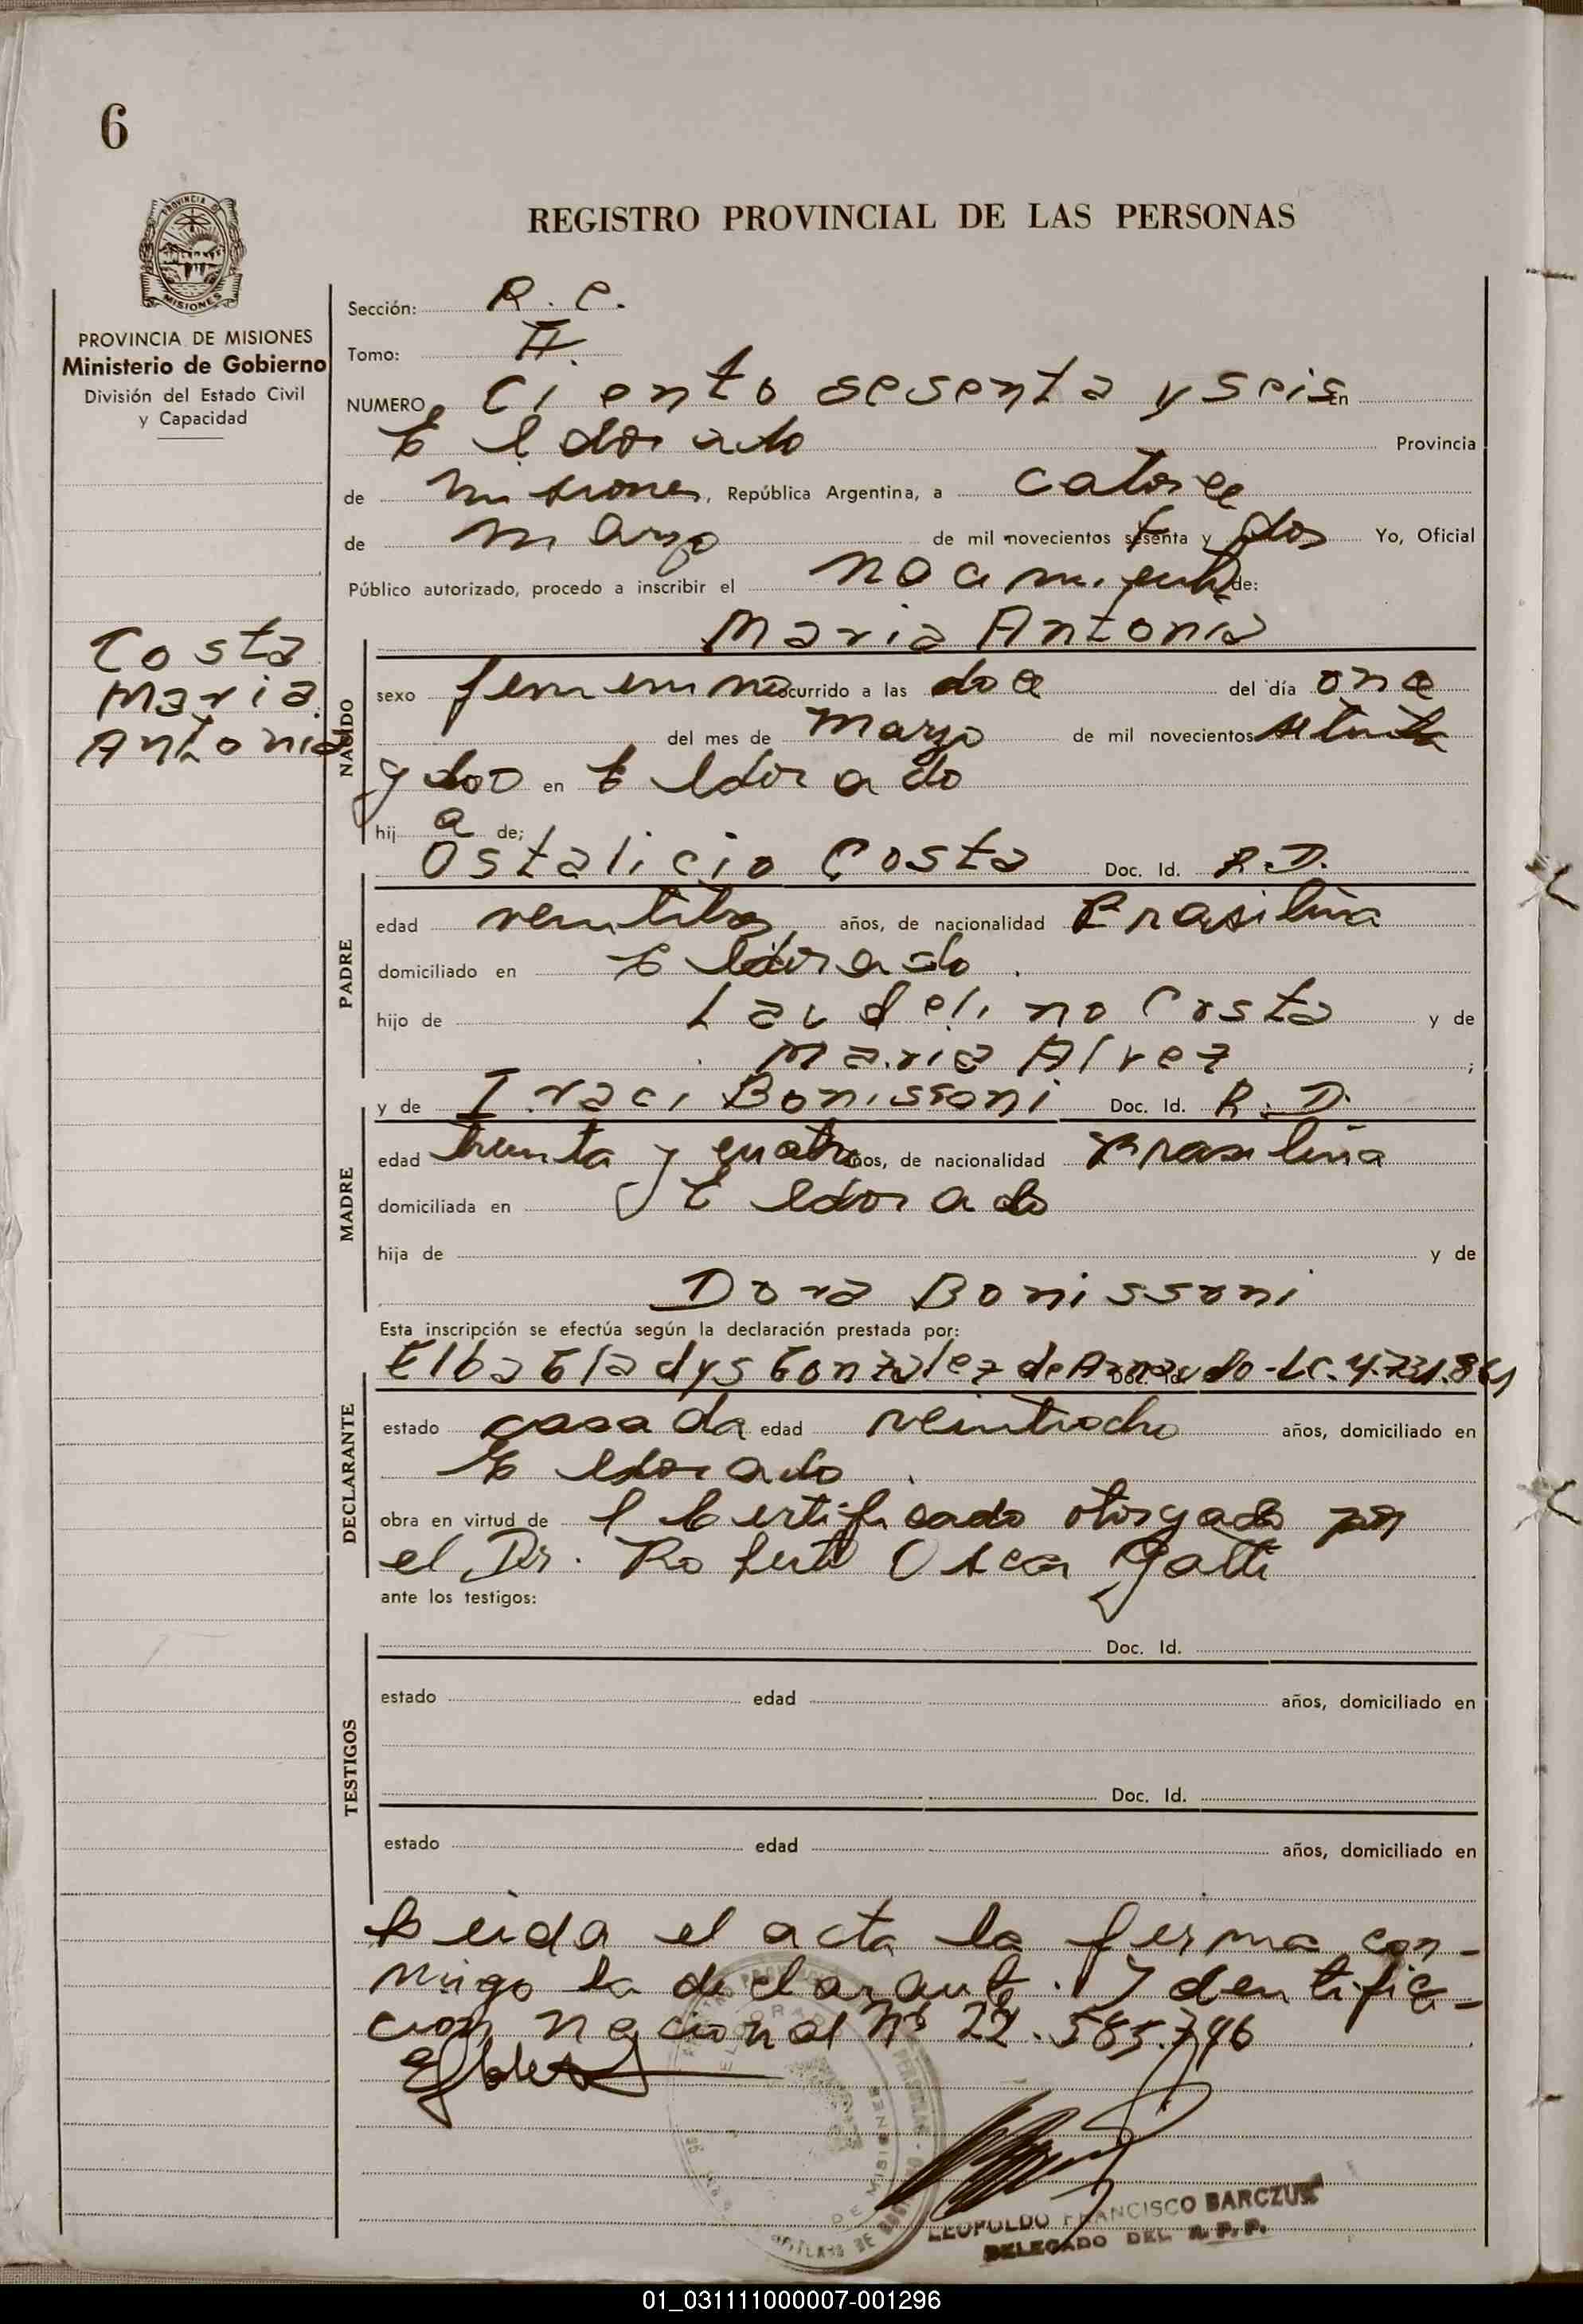 6
REGISTRO PROVINCIAL DE LAS PERSONAS
PROVINCIA DE MISIONES
Ministerio de Gobierno
División del Estado Civil
y Capacidad
Sección: R. C.
Tomo: II
NUMERO Ciento sesenta y seis en
Eldorado Provincia
de misiones, República Argentina, a catorce
de marzo de mil novecientos setenta y dos Yo, Oficial
Público autorizado, procedo a inscribir el nacimiento de:
Costa
Maria
Antonia
NACIDO
Maria Antonia
sexo femenino ocurrido a las doce del día once
del mes de Marzo de mil novecientos setenta
y dos en Eldorado
hija de;
PADRE
Ostalicio Costa Doc. Id. R.D.
edad veintitres años, de nacionalidad Brasilina
domiciliado en Eldorado.
hijo de Laudelino Costa y de
Maria Alvez;
MADRE
y de Iraci Bonissoni Doc. Id. R.D.
edad treinta y cuatro años, de nacionalidad Brasilina
domiciliada en Eldorado
hija de y de
Dora Bonissoni
Esta inscripción se efectúa según la declaración prestada por:
DECLARANTE
Elba Gladys Gonzalez de - LC.
estado casada edad veintiocho años, domiciliado en
Eldorado
obra en virtud de l Certificado otorgado por
el Dr. Roberto Oscar Gatti
ante los testigos:
TESTIGOS
Doc. Id.
estado edad años, domiciliado en
Doc. Id.
estado edad años, domiciliado en
Leida el acta la firma con-
migo la declarante. Identifica-
cion nacional Nº 22.585.746
LEOPOLDO FRANCISCO BARCZUK
DELEGADO DEL R.P.P.
01_031111000007-001296